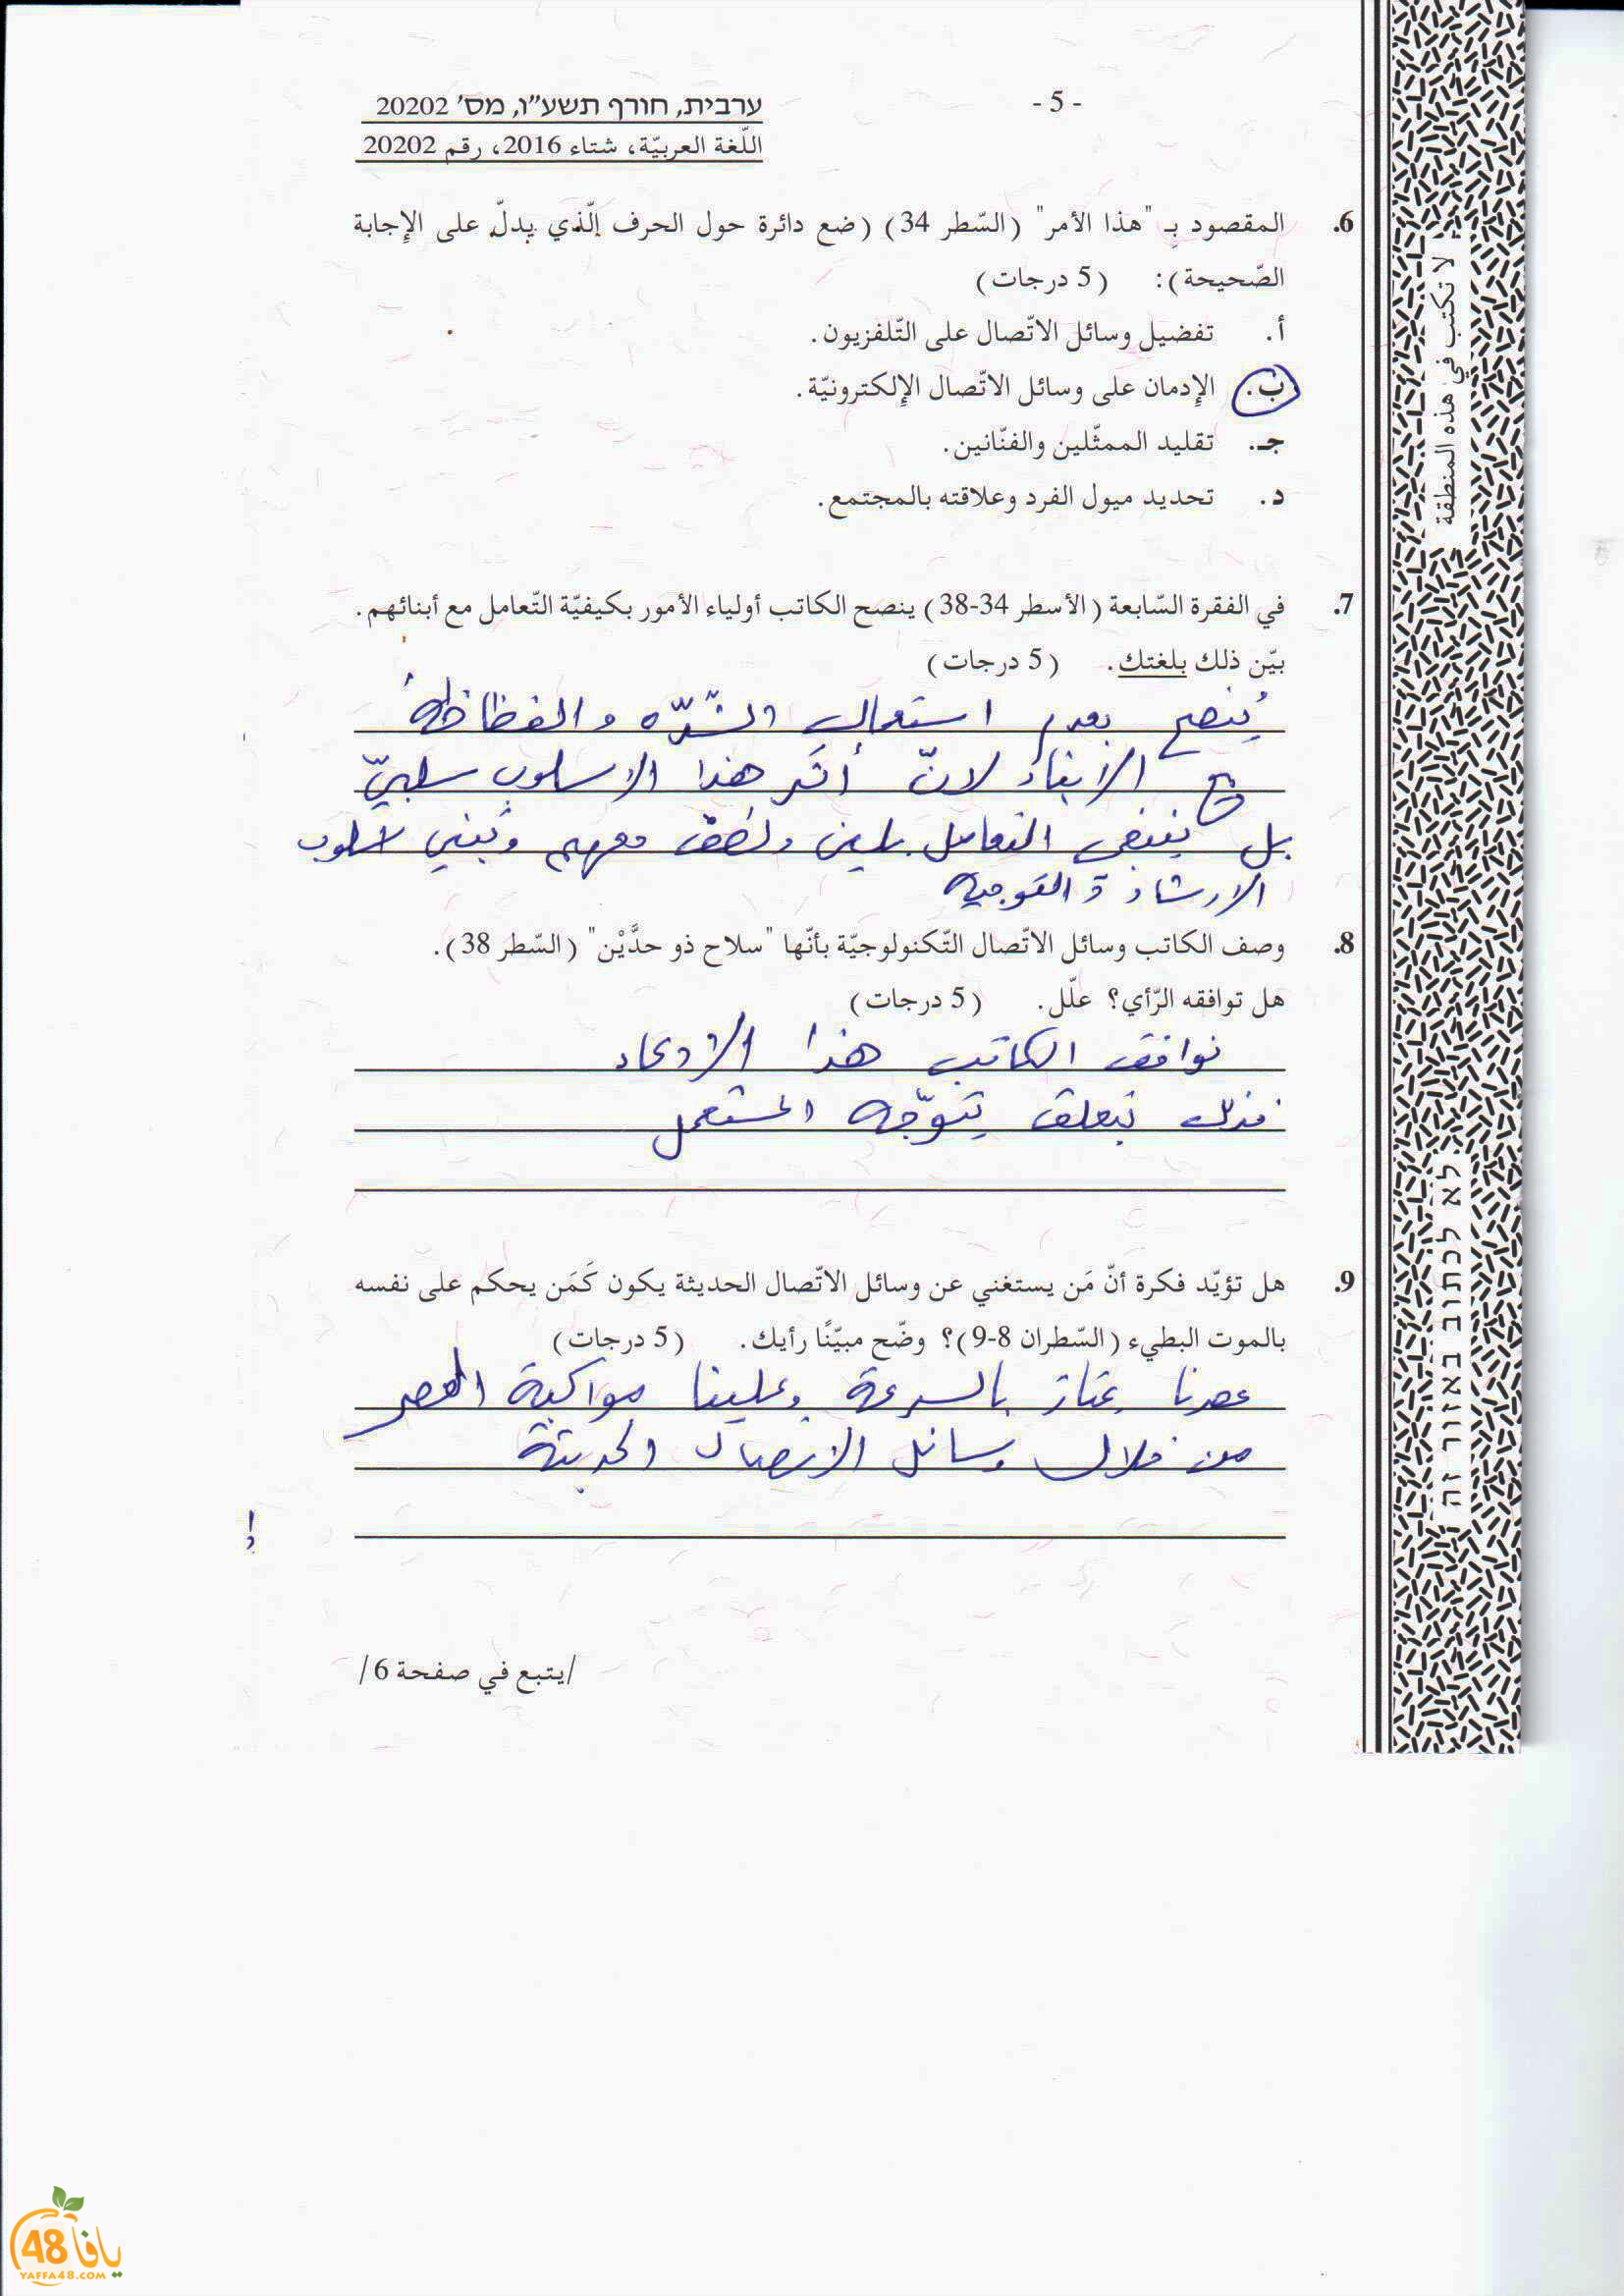 - 5 -
ערבית, חורף תשע"ו, מס' 20202
اللّغة العربيّة، شتاء 2016، رقم 20202
6. المقصود بـ "هذا الأمر" (السّطر 34) (ضع دائرة حول الحرف الّذي يدلّ على الإجابة
الصّحيحة): (5 درجات)
أ. تفضيل وسائل الاتّصال على التّلفزيون.
ب. الإدمان على وسائل الاتّصال الإلكترونيّة.
جـ. تقليد الممثّلين والفنّانين.
د. تحديد ميول الفرد وعلاقته بالمجتمع.
7. في الفقرة السّابعة (الأسطر 34-38) ينصح الكاتب أولياء الأمور بكيفيّة التّعامل مع أبنائهم.
بيّن ذلك بلغتك. (5 درجات)
يُنصح بعدم استعمال الشدّه والفظاظة
مع الابناء لانّ أثر هذا الاسلوب سلبيّ
بل ينبغي التعامل بلين ولطف معهم وتبني اسلوب
الارشاد والتوجيه
8. وصف الكاتب وسائل الاتّصال التّكنولوجيّة بأنّها "سلاح ذو حدَّيْن" (السّطر 38).
هل توافقه الرّأي؟ علّل. (5 درجات)
نوافق الكاتب هذا الادعاء
فذلك يتعلق بتوجّه المستعمل
9. هل تؤيّد فكرة أنّ مَن يستغني عن وسائل الاتّصال الحديثة يكون كَمَن يحكم على نفسه
بالموت البطيء (السّطران 8-9)؟ وضّح مبيّنًا رأيك. (5 درجات)
عصرنا يمتاز بالسرعة وعلينا مواكبة العصر
من خلال وسائل الاتصال الحديثة
/يتبع في صفحة 6/
لا تكتب في هذه المنطقة
לא לכתוב באזור זה
يافا 48
YAFFA48.COM